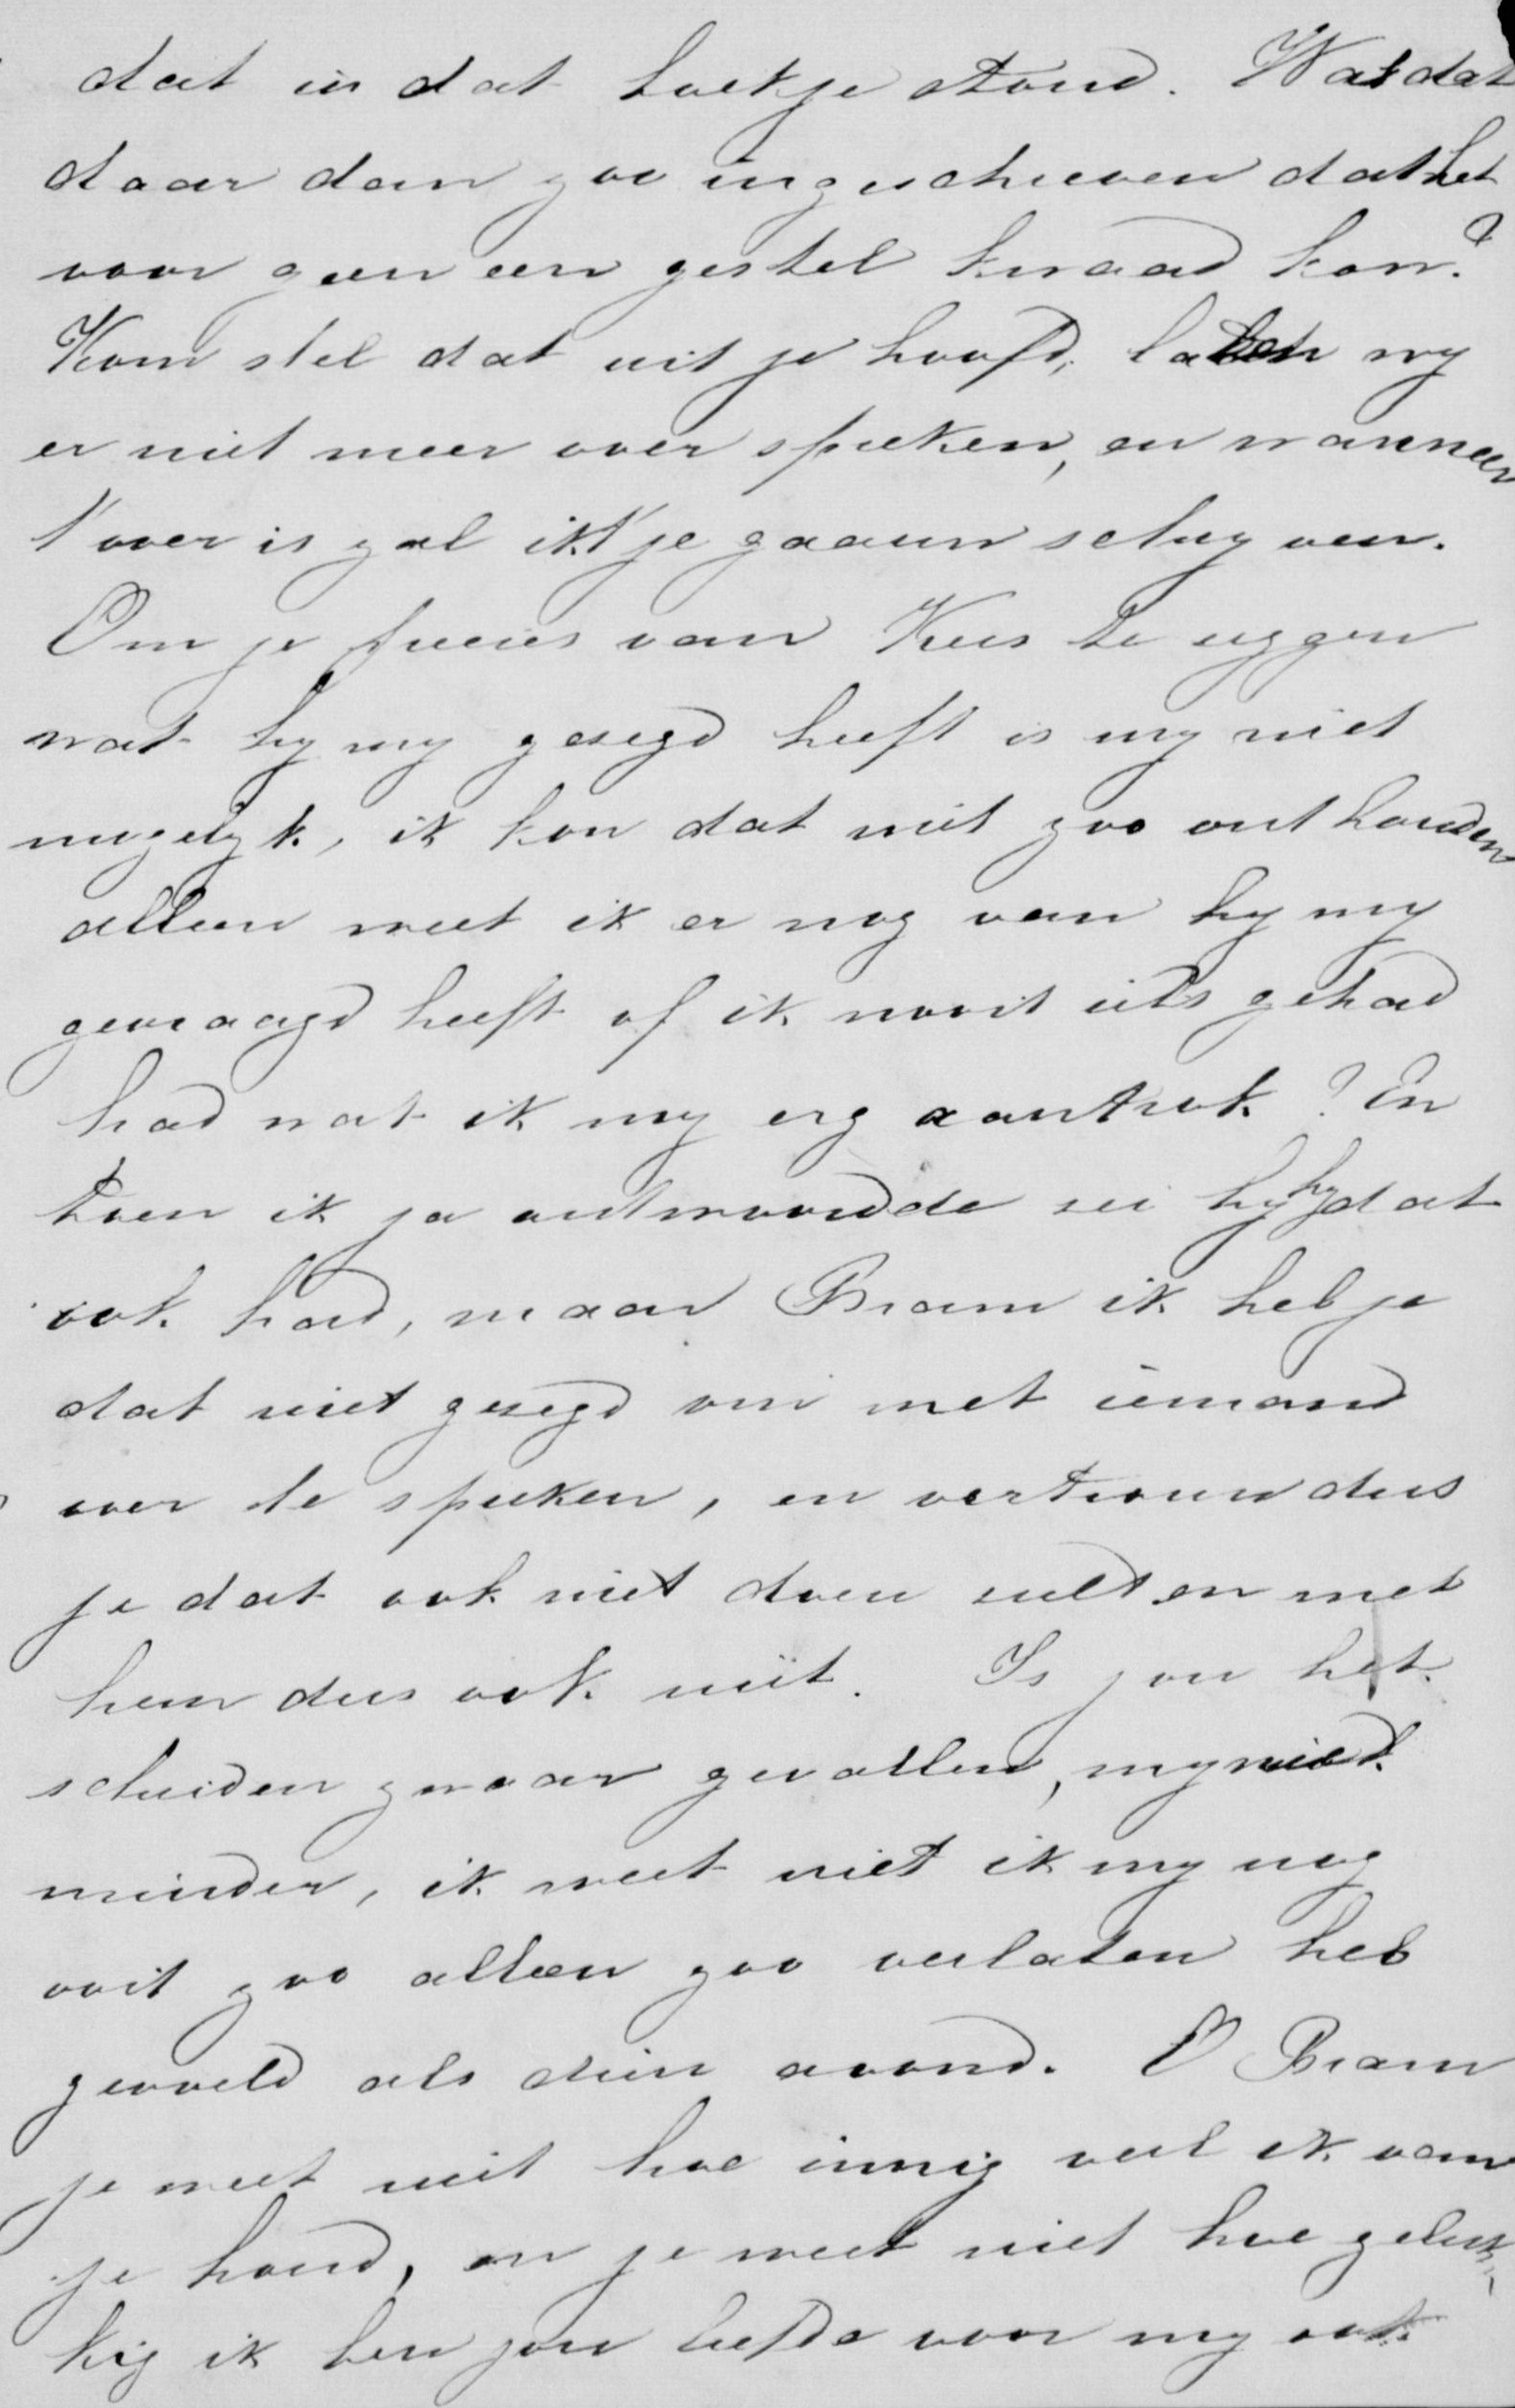 dat in dat boekje stond. Was dat
daar dan zoo ingeschreven dat het
voor geen een gestel kwaad kon?
Kom stel dat uit je hoofd, laten wy
er niet meer over spreken, en wanneer
't over is zal ik 't je gaaun schryven.
Om je precies van Kees te zeggen
wat hy my gezegd heeft is my niet
mogelyk, ik kon dat niet zoo onthouden
alleen weet ik er nog van hy my
gevraagd heeft of ik nooit iets gehad
had wat ik my erg aantrok? En
toen ik ja antwoordde zei hy hy dat
ook had, maar Bram ik heb je
dat niet gezegd om met iemand
over te spreken, en vertrouw dus
je dat ook niet doen zult en met
hem dus ook niet. Is jou het
scheiden zwaar gevallen, my niet
minder, ik weet niet ik my nog
ooit zoo alleen zoo verlaten heb
gevoeld als dien avond. O Bram
je weet niet hoe innig veel ik van
je houd, en je weet niet hoe geluk,
kig ik ben jou liefde voor my ook